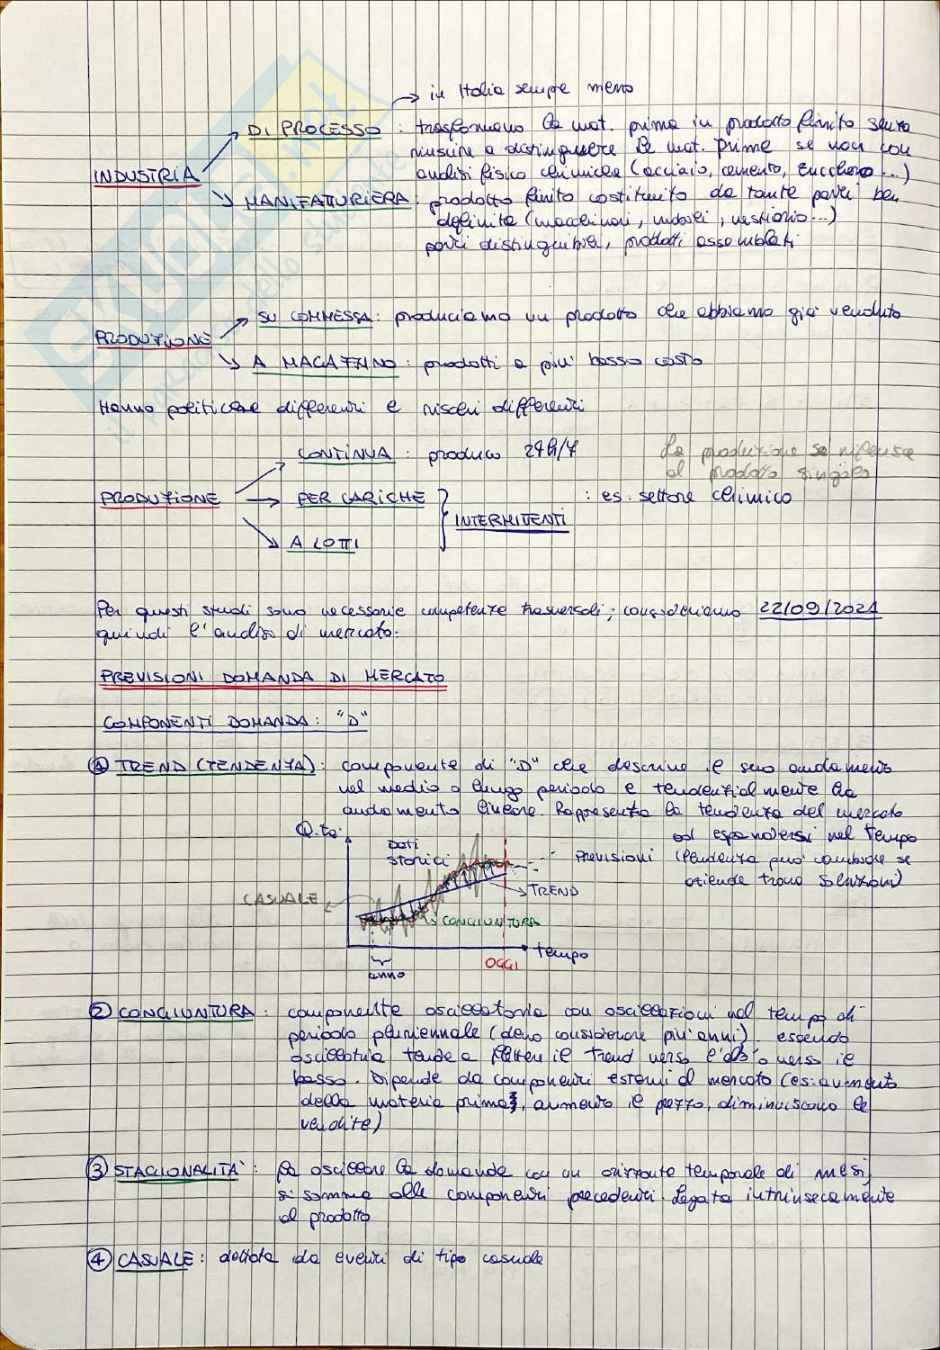 → in Italia sempre meno
INDUSTRIA
DI PROCESSO : trasformano la mat. prima in prodotto finito senza
riuscire a distinguere le mat. prime se non con
analisi fisico chimiche (acciaio, cemento, zucchero...)
MANIFATTURIERA: prodotto finito costituito da tante parti ben
definite (macchinari, mobili, vestiario...)
parti distinguibili, prodotti assemblati
PRODUZIONE
SU COMMESSA: produciamo un prodotto che abbiamo già venduto
A MAGAZZINO: prodotti a più basso costo
Hanno politiche differenti e rischi differenti
PRODUZIONE
CONTINUA : produco 24h/7
La produzione si riferisce
al prodotto singolo
PER CARICHE
: es. settore chimico
INTERMITENTI
A LOTTI
Per questi studi sono necessarie competenze trasversali; consideriamo 22/09/2021
quindi l'analisi di mercato.
PREVISIONI DOMANDA DI MERCATO
COMPONENTI DOMANDA: "D"
① TREND (TENDENZA): componente di "D" che descrive il suo andamento
nel medio o lungo periodo e tendenzialmente ha
andamento lineare. Rappresenta la tendenza del mercato
ad espandersi nel tempo
(tendenza può cambiare se
aziende trova soluzioni)
Q.tà
Dati
storici
Previsioni
TREND
CASUALE
CONGIUNTURA
tempo
OGGI
anno
② CONGIUNTURA: componente oscillatoria con oscillazioni nel tempo di
periodo pluriennale (devo considerare più anni) essendo
oscillatoria tende a flettere il trend verso l'alto o verso il
basso. Dipende da componenti esterni al mercato (es: aumento
della materia prima, aumento il prezzo, diminuiscono le
vendite)
③ STAGIONALITA': fa oscillare la domanda con un orizzonte temporale di mesi,
si somma alle componenti precedenti. Legata intrinsecamente
al prodotto
④ CASUALE: dettata da eventi di tipo casuale